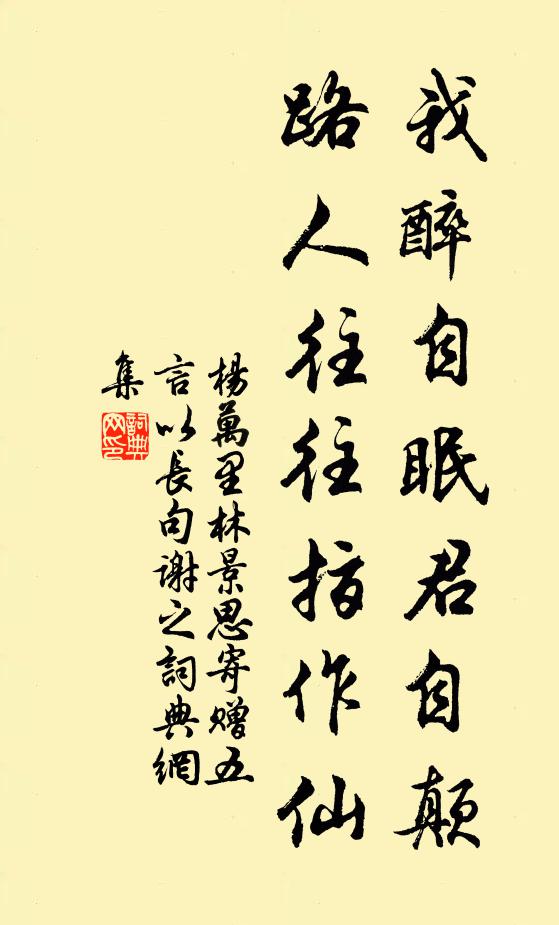 我醉自眠君自顛
路人往往指作仙
楊萬里林景思寄贈五
言以長句謝之詞典網
集
詞典
网印